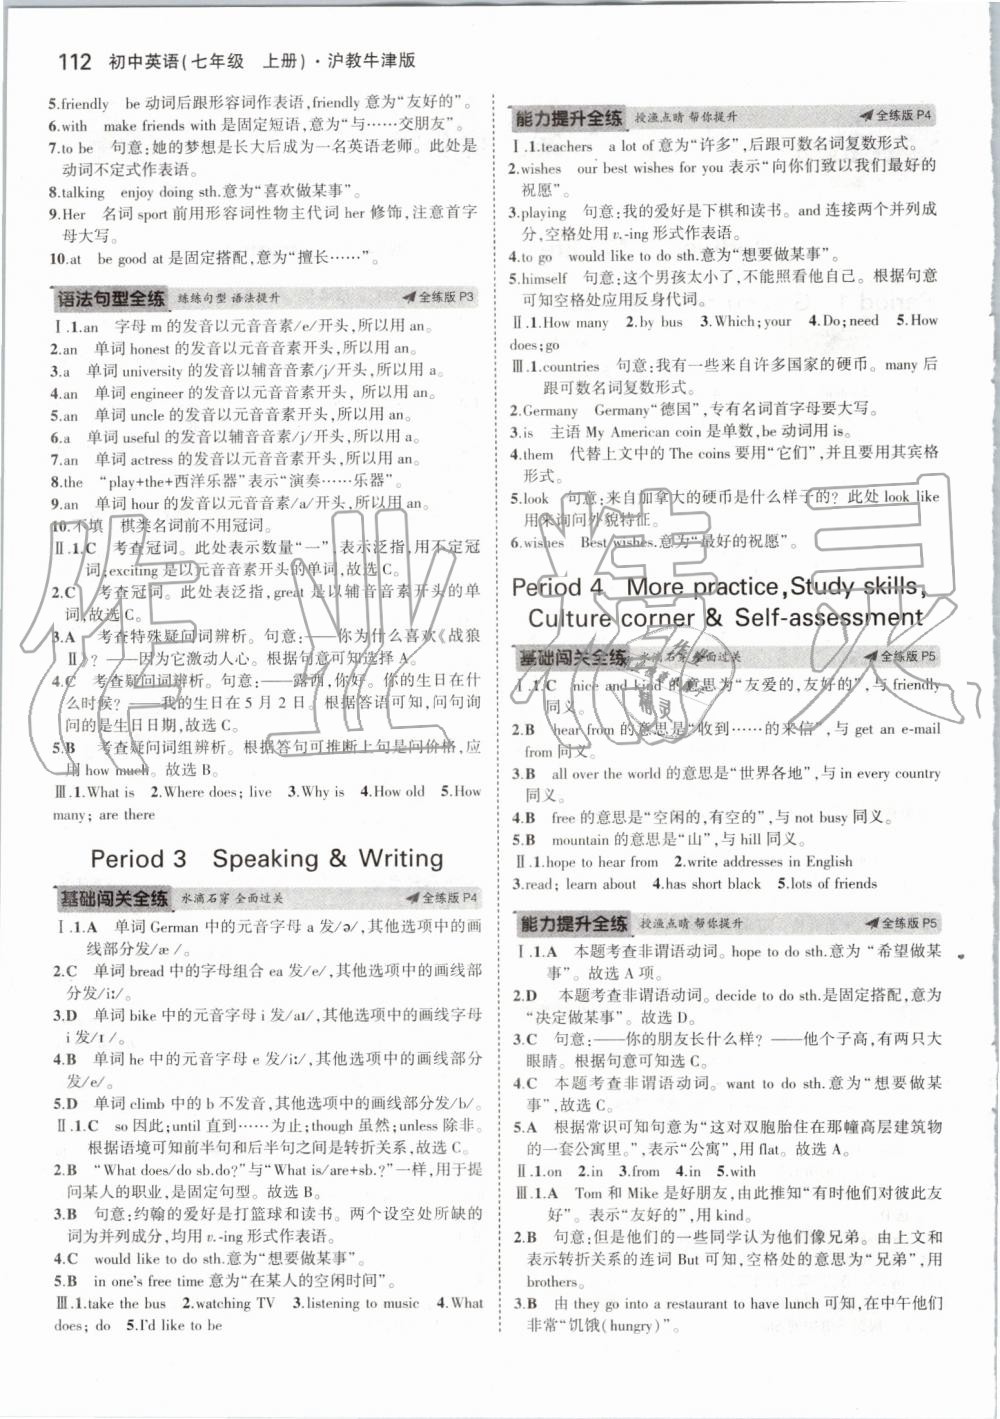 112 初中英语(七年级 上册)·沪教牛津版
5.friendly be 动词后跟形容词作表语,friendly 意为“友好的”。
6.with make friends with 是固定短语,意为“与……交朋友”。
7.to be 句意:她的梦想是长大后成为一名英语老师。此处是
动词不定式作表语。
8.talking enjoy doing sth.意为“喜欢做某事”。
9.Her 名词 sport 前用形容词性物主代词 her 修饰,注意首字
母大写。
10.at be good at 是固定搭配,意为“擅长……”。
语法句型全练 练练句型 语法提升 全练版 P3
Ⅰ.1.an 字母 m 的发音以元音音素/e/开头,所以用 an。
2.an 单词 honest 的发音以元音音素开头,所以用 an。
3.a 单词 university 的发音以辅音音素/j/开头,所以用 a。
4.an 单词 engineer 的发音以元音音素开头,所以用 an。
5.an 单词 uncle 的发音以元音音素开头,所以用 an。
6.a 单词 useful 的发音以辅音音素/j/开头,所以用 a。
7.an 单词 actress 的发音以元音音素开头,所以用 an。
8.the “play+the+西洋乐器”表示“演奏……乐器”。
9.an 单词 hour 的发音以元音音素/a/开头,所以用 an。
10.不填 棋类名词前不用冠词。
Ⅱ.1.C 考查冠词。此处表示数量“一”,表示泛指,用不定冠
词;exciting 是以元音音素开头的单词,故选 C。
2.C 考查冠词。此处表泛指,great 是以辅音音素开头的单
词,故选 C。
3.A 考查特殊疑问词辨析。句意:——你为什么喜欢《战狼
Ⅱ》? ——因为它激动人心。根据句意可知选择 A。
4.C 考查疑问词辨析。句意:——露西,你好。你的生日在什
么时候? ——我的生日在 5 月 2 日。根据答语可知,问句询
问的是生日日期,故选 C。
5.B 考查疑问词组辨析。根据答句可推断上句是问价格,应
用 how much。故选 B。
Ⅲ.1.What is 2.Where does; live 3.Why is 4.How old 5.How
many; are there
Period 3 Speaking & Writing
基础闯关全练 水滴石穿 全面过关 全练版 P4
Ⅰ.1.A 单词 German 中的元音字母 a 发/ə/,其他选项中的画
线部分发/æ /。
2.C 单词 bread 中的字母组合 ea 发/e/,其他选项中的画线部
分发/iː/。
3.D 单词 bike 中的元音字母 i 发/aɪ/,其他选项中的画线字母
i 发/ɪ /。
4.B 单词 he 中的元音字母 e 发/iː/,其他选项中的画线部分
发/e/。
5.D 单词 climb 中的 b 不发音,其他选项中的画线部分发/b/。
Ⅱ.1.C so 因此;until 直到……为止;though 虽然;unless 除非。
根据语境可知前半句和后半句之间是转折关系,故选 C。
2.B “What does/do sb.do?”与“What is/are+sb.?”一样,用于提
问某人的职业,是固定句型。故选 B。
3.B 句意:约翰的爱好是打篮球和读书。两个设空处所缺的
词为并列成分,均用 v.-ing 形式作表语。
4.C would like to do sth.意为“想要做某事”。
5.B in one's free time 意为“在某人的空闲时间”。
Ⅲ.1.take the bus 2.watching TV 3.listening to music 4.What
does; do 5.I'd like to be
能力提升全练 授渔点睛 帮你提升 全练版 P4
Ⅰ.1.teachers a lot of 意为“许多”,后跟可数名词复数形式。
2.wishes our best wishes for you 表示“向你们致以我们最好的
祝愿”。
3.playing 句意:我的爱好是下棋和读书。and 连接两个并列成
分,空格处用 v.-ing 形式作表语。
4.to go would like to do sth.意为“想要做某事”。
5.himself 句意:这个男孩太小了,不能照看他自己。根据句意
可知空格处应用反身代词。
Ⅱ.1.How many 2.by bus 3.Which;your 4.Do;need 5.How
does;go
Ⅲ.1.countries 句意:我有一些来自许多国家的硬币。many 后
跟可数名词复数形式。
2.Germany Germany“德国”,专有名词首字母要大写。
3.is 主语 My American coin 是单数,be 动词用 is。
4.them 代替上文中的 The coins 要用“它们”,并且用其宾格
形式。
5.look 句意:来自加拿大的硬币是什么样子的? 此处 look like
用来询问外貌特征。
6.wishes Best wishes.意为“最好的祝愿”。
Period 4 More practice,Study skills,
Culture corner & Self-assessment
基础闯关全练 水滴石穿 全面过关 全练版 P5
Ⅰ.1.C nice and kind 的意思为“友爱的,友好的”,与 friendly
同义。
2.B hear from 的意思是“收到……的来信”,与 get an e-mail
from 同义。
3.B all over the world 的意思是“世界各地”,与 in every country
同义。
4.B free 的意思是“空闲的,有空的”,与 not busy 同义。
5.B mountain 的意思是“山”,与 hill 同义。
Ⅱ.1.hope to hear from 2.write addresses in English
3.read; learn about 4.has short black 5.lots of friends
能力提升全练 授渔点睛 帮你提升 全练版 P5
Ⅰ.1.A 本题考查非谓语动词。hope to do sth.意为“希望做某
事”。故选 A 项。
2.D 本题考查非谓语动词。decide to do sth.是固定搭配,意为
“决定做某事”。故选 D。
3.C 句意:——你的朋友长什么样? ——他个子高,有两只大
眼睛。根据句意可知选 C。
4.C 本题考查非谓语动词。want to do sth.意为“想要做某
事”,故选 C。
5.A 根据常识可知句意为“这对双胞胎住在那幢高层建筑物
的一套公寓里。”,表示“公寓”,用 flat。故选 A。
Ⅱ.1.on 2.in 3.from 4.in 5.with
Ⅲ.1.A Tom 和 Mike 是好朋友,由此推知“有时他们对彼此友
好”。表示“友好的”,用 kind。
2.B 句意:但是他们的一些同学认为他们像兄弟。由上文和
表示转折关系的连词 But 可知,空格处的意思为“兄弟”,用
brothers。
3.B 由 they go into a restaurant to have lunch 可知,在中午他们
非常“饥饿(hungry)”。
作业精灵